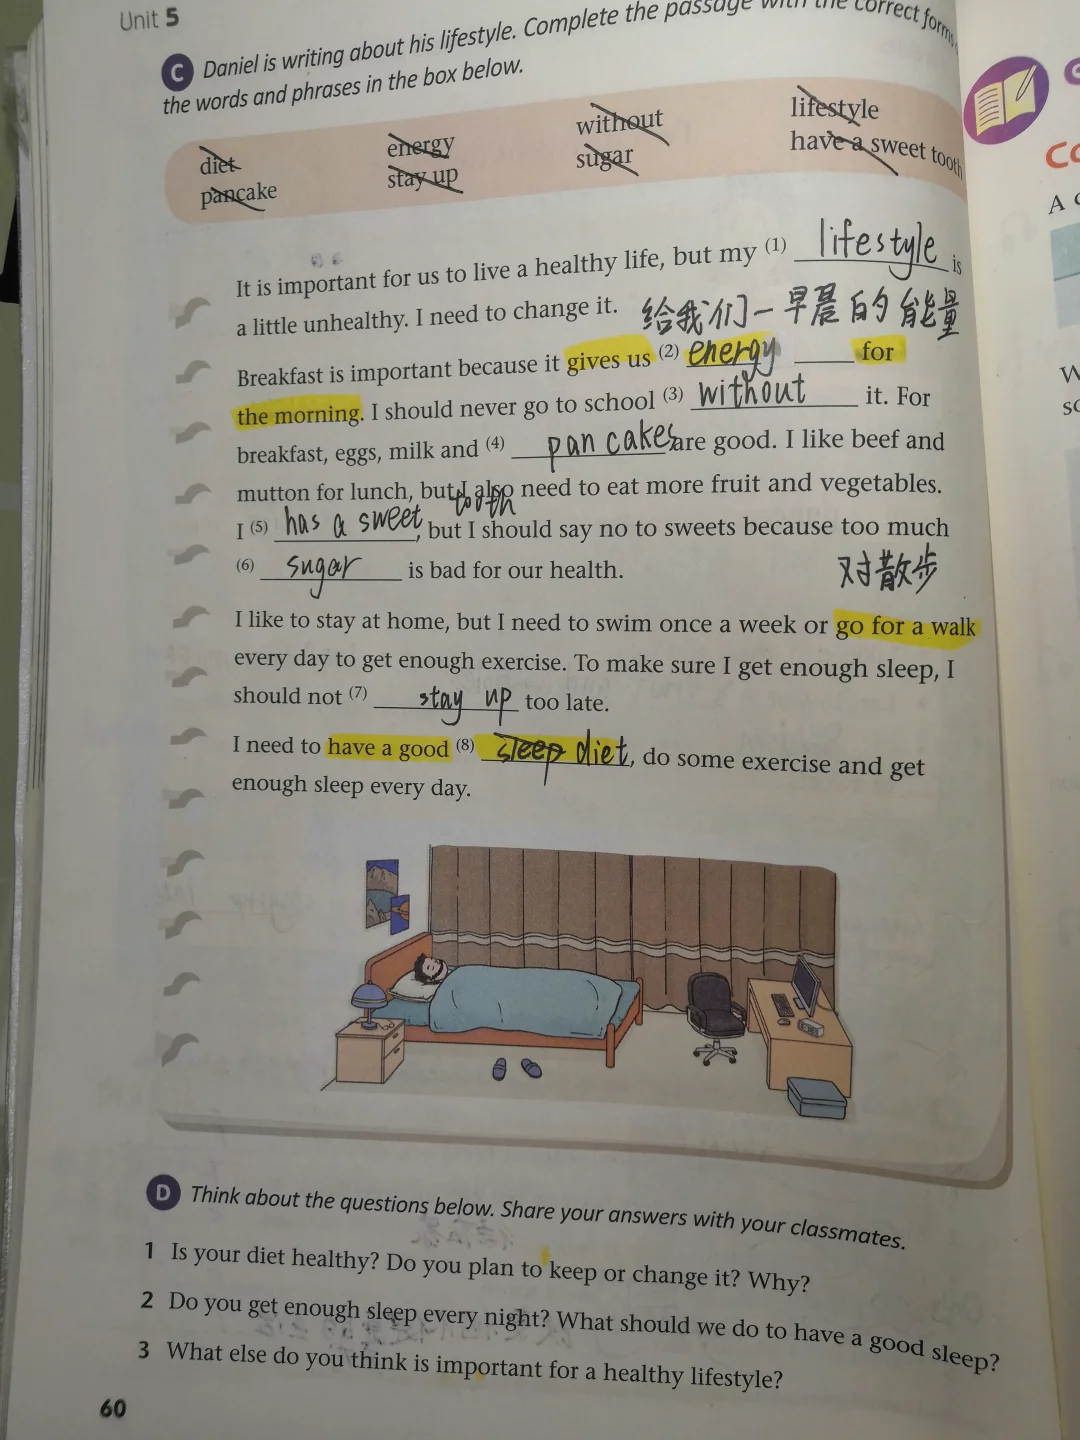 Unit 5
C Daniel is writing about his lifestyle. Complete the passage with the correct forms
the words and phrases in the box below.
diet energy without lifestyle
pancake stay up sugar have a sweet tooth
It is important for us to live a healthy life, but my (1) lifestyle is
a little unhealthy. I need to change it. 给我们一早晨的能量
Breakfast is important because it gives us (2) energy for
the morning. I should never go to school (3) without it. For
breakfast, eggs, milk and (4) pan cakes are good. I like beef and
mutton for lunch, but I also need to eat more fruit and vegetables.
tooth
I (5) has a sweet, but I should say no to sweets because too much
(6) sugar is bad for our health. 对散步
I like to stay at home, but I need to swim once a week or go for a walk
every day to get enough exercise. To make sure I get enough sleep, I
should not (7) stay up too late.
I need to have a good (8) sleep diet, do some exercise and get
enough sleep every day.
D Think about the questions below. Share your answers with your classmates.
1 Is your diet healthy? Do you plan to keep or change it? Why?
2 Do you get enough sleep every night? What should we do to have a good sleep?
3 What else do you think is important for a healthy lifestyle?
60